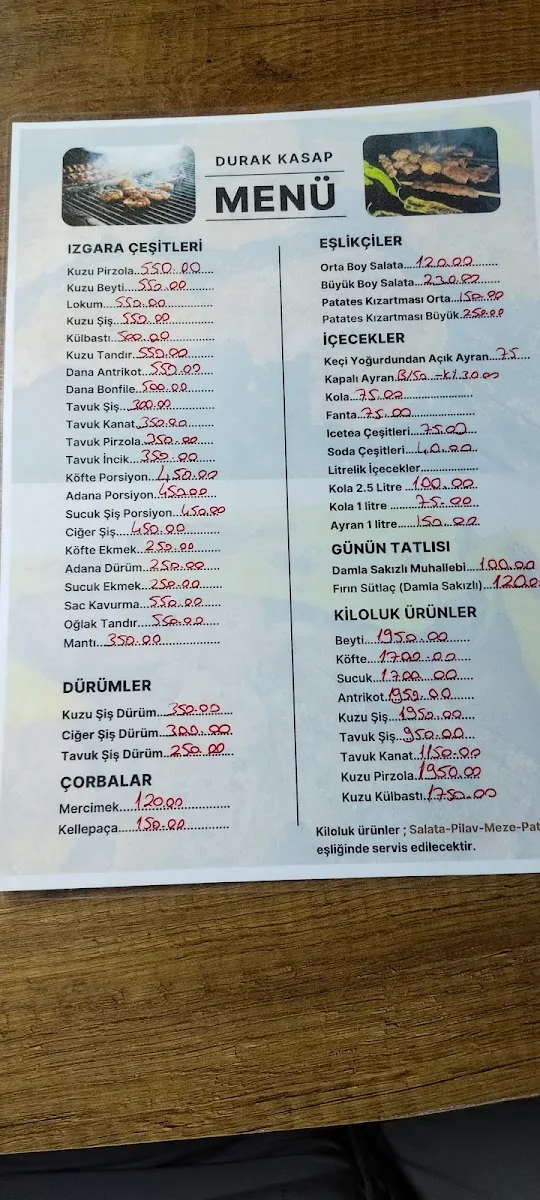 DURAK KASAP
MENÜ
IZGARA ÇEŞİTLERİ
Kuzu Pirzola..550.00....
Kuzu Beyti...550.00......
Lokum....550.00............
Kuzu Şiş..550.00...........
Külbastı..500.00...........
Kuzu Tandır..550.00.......
Dana Antrikot..550.00...
Dana Bonfile..500.00.....
Tavuk Şiş...300.00...........
Tavuk Kanat..350.00......
Tavuk Pirzola..350.00....
Tavuk İncik...350.00.......
Köfte Porsiyon...450.00
Adana Porsiyon..450.00
Sucuk Şiş Porsiyon..450.00
Ciğer Şiş....450.00.........
Köfte Ekmek..250.00......
Adana Dürüm..250.00.....
Sucuk Ekmek..250.00......
Sac Kavurma..550.00......
Oğlak Tandır...550.00......
Mantı..350.00...............
DÜRÜMLER
Kuzu Şiş Dürüm...350.00...
Ciğer Şiş Dürüm..300.00
Tavuk Şiş Dürüm..250.00
ÇORBALAR
Mercimek....120.00............
Kellepaça.....150.00...........
EŞLİKÇİLER
Orta Boy Salata...120.00......
Büyük Boy Salata...230.00
Patates Kızartması Orta..150.00
Patates Kızartması Büyük.250.00
İÇECEKLER
Keçi Yoğurdundan Açık Ayran..75....
Kapalı Ayran.B/50 - K/30.00
Kola...75.00..................
Fanta..75.00..................
Icetea Çeşitleri...75.00....
Soda Çeşitleri...40.00....
Litrelik İçecekler................
Kola 2.5 Litre ..100.00
Kola 1 litre ......75.00
Ayran 1 litre.....150.00
GÜNÜN TATLISI
Damla Sakızlı Muhallebi...100.00
Fırın Sütlaç (Damla Sakızlı)..120.0
KİLOLUK ÜRÜNLER
Beyti..1950.00.......
Köfte...1700.00....
Sucuk..1700.00...
Antrikot.1950.00...
Kuzu Şiş..1950.00....
Tavuk Şiş..950.00...
Tavuk Kanat.1150.00
Kuzu Pirzola..1950.00
Kuzu Külbastı..1750.00
Kiloluk ürünler ; Salata-Pilav-Meze-Pat
eşliğinde servis edilecektir.